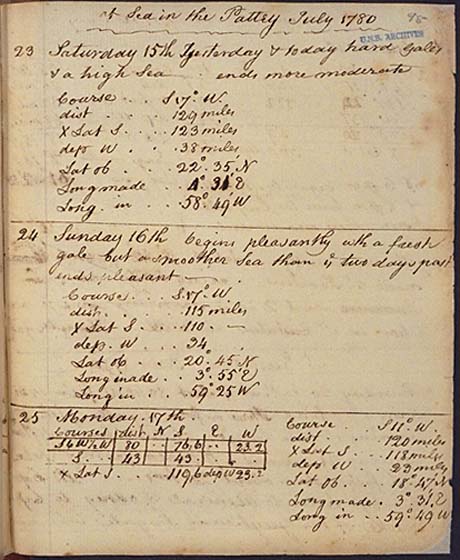 at Sea in the Pattey July 1780
U.N.B. ARCHIVES
23 Saturday 15th Yesterday & today hard Gales
& a high Sea ends more moderate
Course . . S 17° W.
dist . . . 129 miles
X Lat S . . . 123 miles
dep W . . . 38 miles
Lat ob . . . 22°. 35, N
Long made . . 4°. 31, E
Long. in . . 58°. 49 W
24 Sunday 16th begins pleasantly with a fresh
gale but a smoother Sea than ye two days past
ends pleasant
Courses . . S 17°. W
dist . . . 115 miles
X Lat S . . . 110
dep. W . . . 34
Lat ob . . . 20°. 45 N
Long made . . 3°. 55 E
Long in . . . 59°. 25 W
25 Monday 17th.
Courses dist N S. E. W
S 16 W 80 76,6 23.2
S . . 43 43
X Lat S . . . 119,6 dep W 23.2
Course . . S 11° W.
dist . . . 120 miles
X Lat S . . . 118 miles
dep W . . 23 miles
Lat ob . . . 18°. 47 N
Long made . 3°. 31, E
Long in . . 59°. 49 W